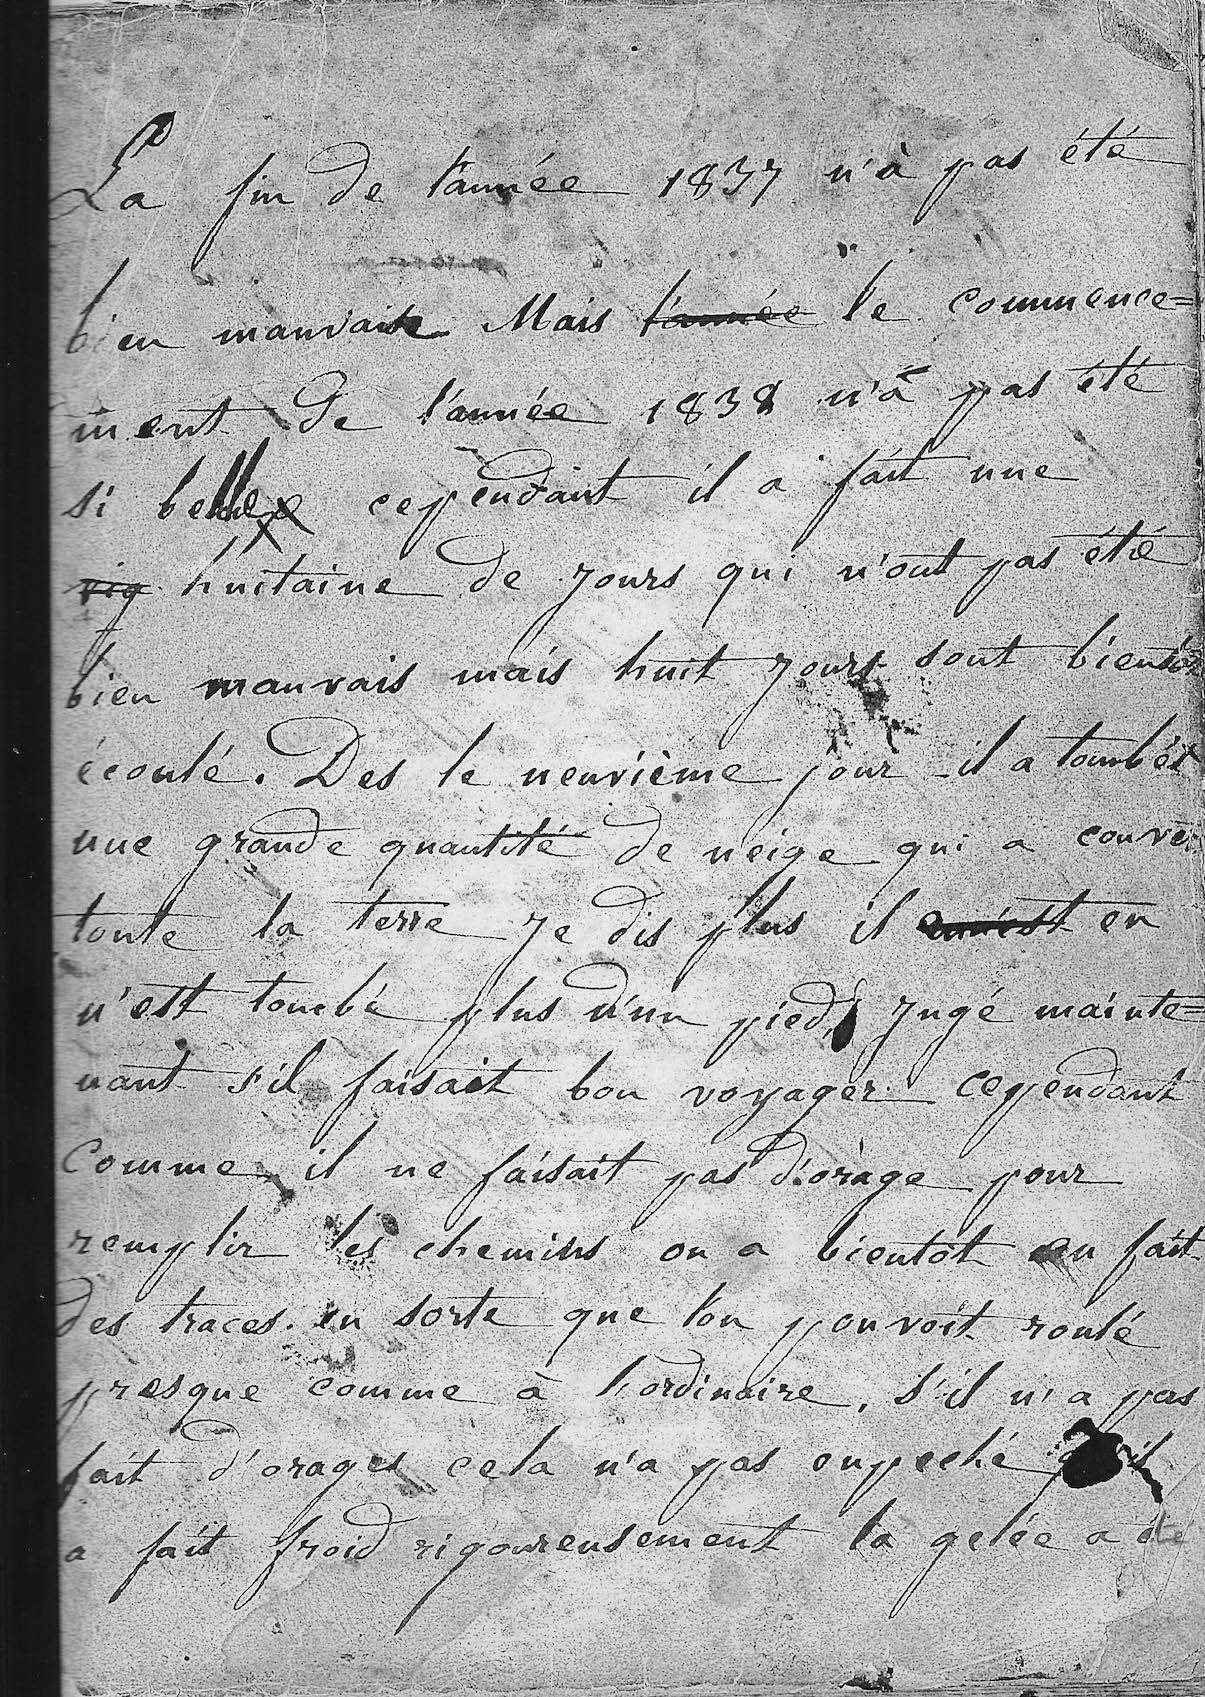 La fin de l'année 1837 n'à pas été
bien mauvaise Mais l'année le commence=
ment de l'année 1838 n'a pas été
si belle cependant il a fait une
vig huitaine de jours qui n'ont pas été
bien mauvais mais huit jours sont bientôt
écoulé. Des le neuvième jour il a tombés
une grande quantité de neige qui a couver
toute la terre je dis plus il en
n'est tombé plus d'un pied jugé mainte=
nant s'il faisait bon voyager cependant
Comme il ne faisait pas d'orage pour
remplir les chemins on a bientôt en fait
des traces. en sorte que l'on pouvoit roulé
presque comme à l'ordinaire, s'il n'a pas
fait d'orages cela n'a pas enpeché qu'il
a fait froid rigoureusement la gelée a été